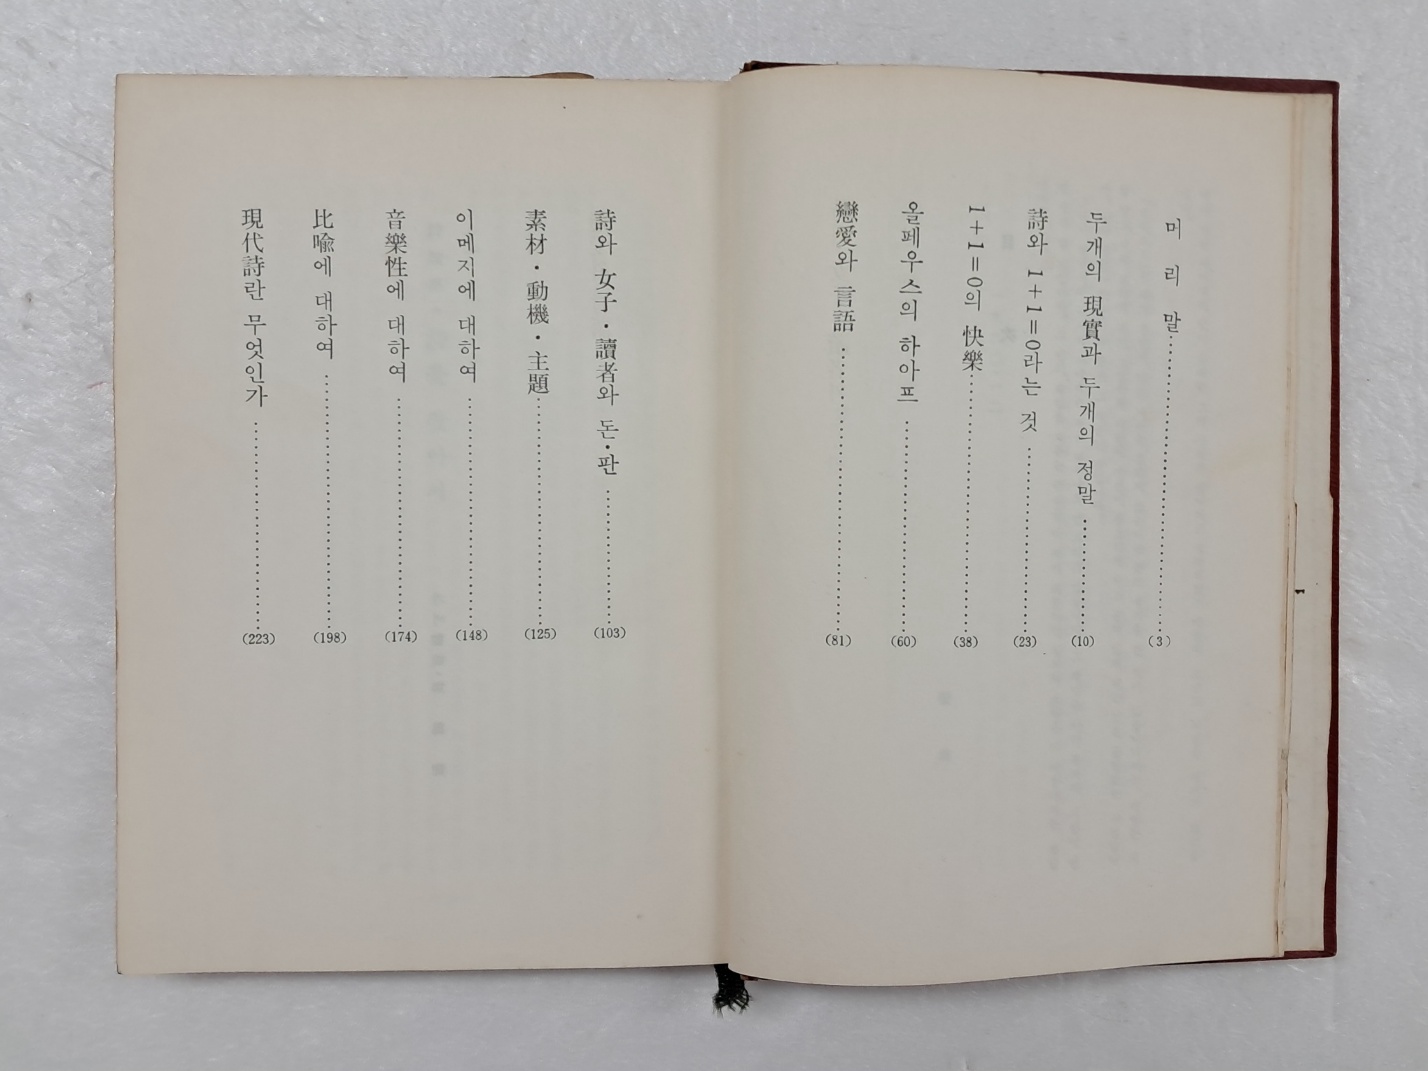 머리말……(3)
두개의 現實과 두개의 정말……(10)
詩와 1+1=0라는 것……(23)
1+1=0의 快樂……(38)
올페우스의 하아프……(60)
戀愛와 言語……(81)
詩와 女子・讀者와 돈・판……(103)
素材・動機・主題……(125)
이메지에 대하여……(148)
音樂性에 대하여……(174)
比喩에 대하여……(198)
現代詩란 무엇인가……(223)